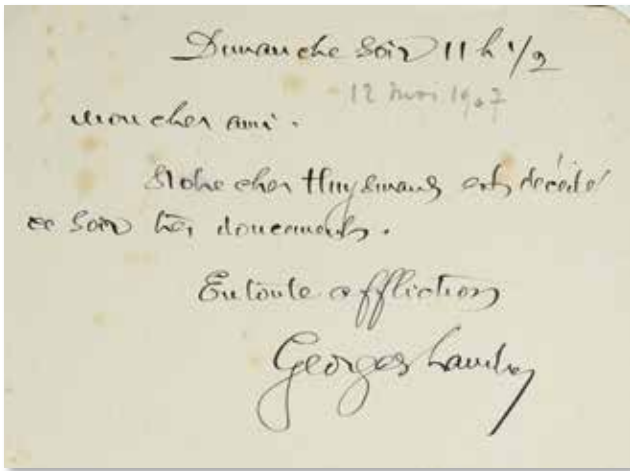 Dimanche soir 11 h 1/2
12 mai 1907
mon cher ami.
Notre cher Huysmans est décédé
ce soir très doucement.
En toute affliction
Georges Landry